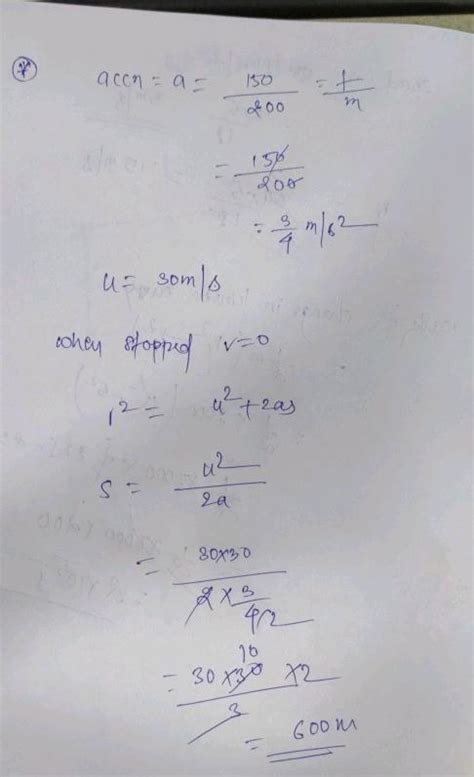 accn = a = 150/200 = f/m
= 150/200
= 3/4 m/s²
u = 30m/s
when stopped v=0
v² = u²+2as
s = u²/2a
= 30x30/2x3/4 2
= 30x30 10 x2/3
= 600m